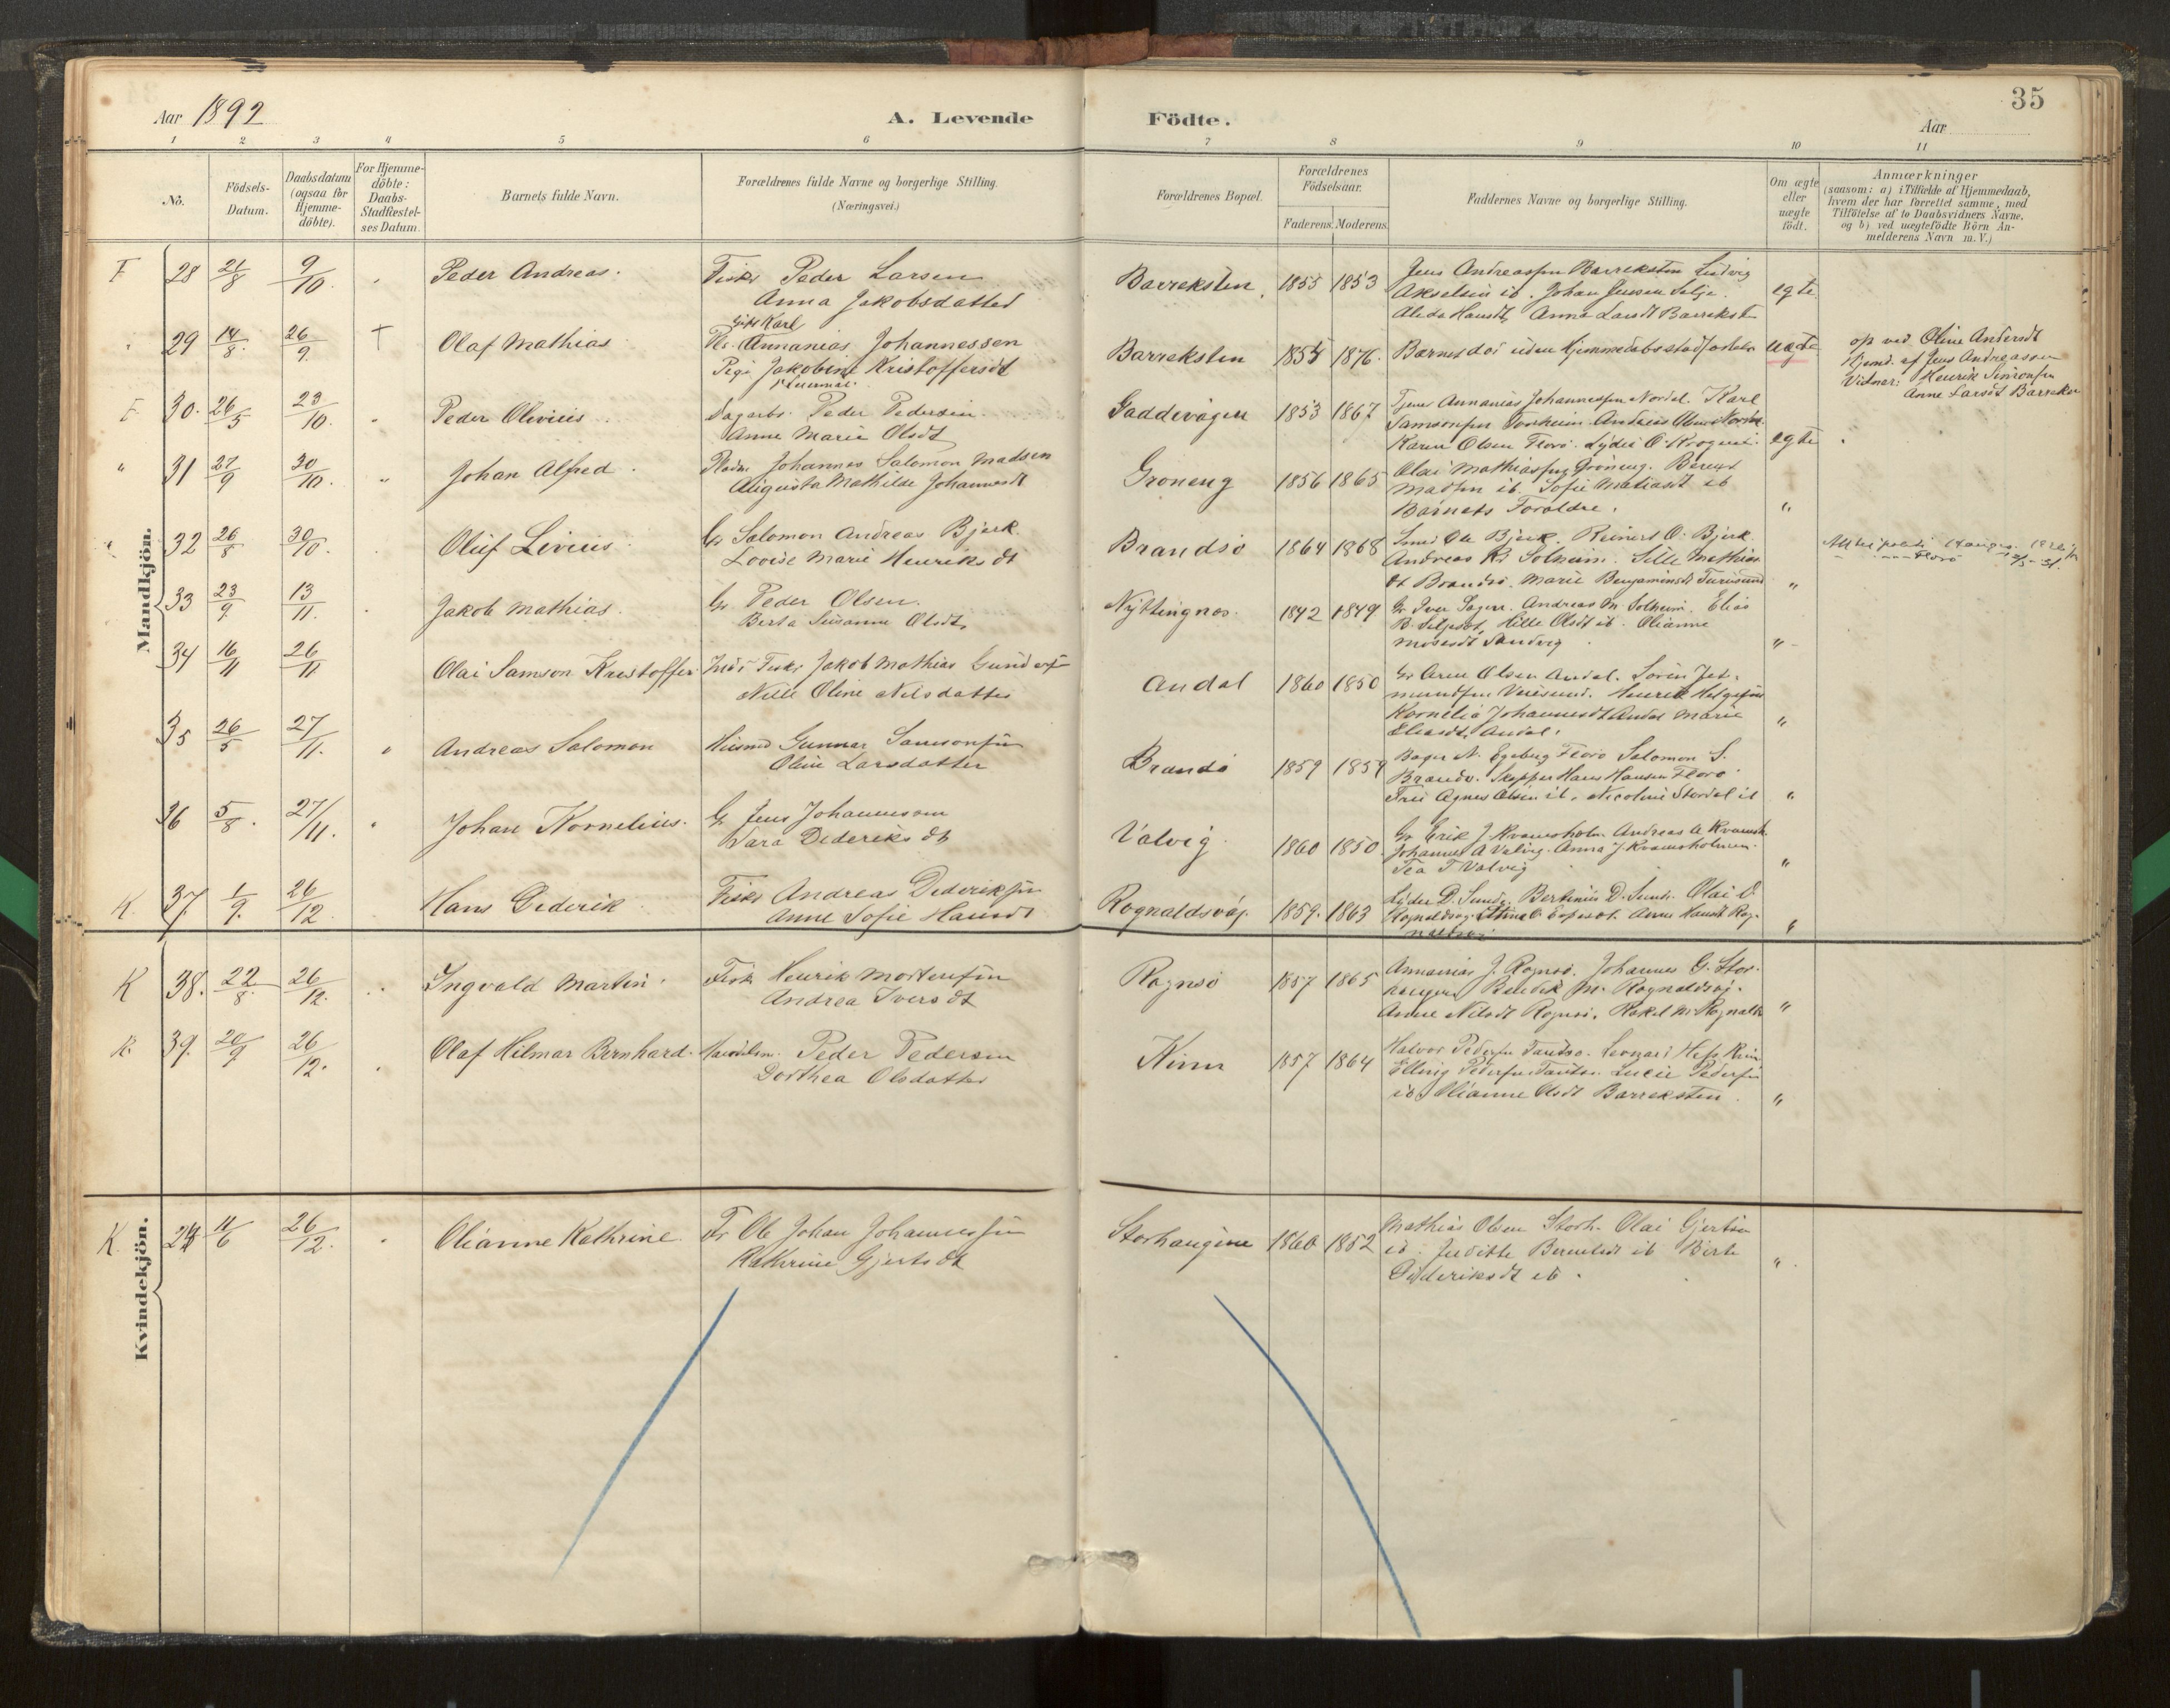 Aar 1892
A. Levende Födte.
35
Aar
1 2 3 4 5 6 7 8 9 10 11
No.
Födsels-
Datum.
Daabsdatum
(ogsaa for
Hjemme-
döbte).
For Hjemme-
döbte:
Daabs-
Stadfæstel-
ses Datum.
Barnets fulde Navn.
Forældrenes fulde Navne og borgerlige Stilling.
(Næringsvei.)
Forældrenes Bopæl.
Forældrenes
Födselsaar.
Faderens. Moderens.
Faddernes Navne og borgerlige Stilling.
Om ægte
eller
uægte
födt.
Anmærkninger
(saasom: a) i Tilfælde af Hjemmedaab,
hvem der har forrettet samme, med
Tilföielse af to Daabsvidners Navne,
og b) ved uægtefödte Börn An-
melderens Navn m. V.)
Mandkjön.
F. 28 21/8 9/10 Peder Andreas.
Fisker Peder Larsen
Anna Jakobsdatter
Barreksten 1855 1853
Jens Andreassen Barreksten Ludvig
Akselsen ib. Johan Jenssen Selje.
Alida Hansdt, Anna Larsdt Barrekst
egte
29 14/8. 26/9 † Olaf Mathias
Gift Karl
Annanias Johannessen
Pige Jakobine Kristoffersdt
Barreksten 1855 1876.
Barnet döi uden Hjemmedaabsstadfæstelse
uegte
op ved Oline Andersdt
Hjemd. af Jens Andreassen
Vidner: Henrik Simonsen
Anne Larsdt Barreksten
F. 30. 26/5 23/10 Peder Olivius
Dagarb. Peder Pedersen
Anne Marie Olsdt
Gaddevågen 1853 1867
Tjener Annanias Johannessen Nordal. Karl
Samsonsen Torsheim. Andreas Olsen Nordal
Karen Olsen Florö. Lydia O. Krogeni.
egte
" 31 27/9 30/10. " Johan Alfred.
Johannes Salomon Madsen
Augusta Mathilde Johannesdt
Groneng 1856 1865
Olai Mathiassen Gröneng. Berent
Madsen ib. Sofie Matiasdt ib
Barnets Foraldre.
"
32 26/8 30/10 Oluf Livius
Gr Salomon Andreas Bjerk
Lovise Marie Henriksdt
Brandsö 1864 1868
Smed Ole Bjerk. Reinert O. Bjerk
Andreas Kr Solheim. Sille Mathias
dt Brandsö. Marie Benjaminsdt
"
33 23/9 13/11. Jakob Mathias.
Gr Peder Olsen.
Berta Susanne Olsdt.
Nyttingnes. 1842 1849
Gr Iver Sagen. Andreas M. Solheim. Elias
Hille Olsdt ib. Olianne
Mosesdt Sandvig
"
34 16/11 26/11 Olai Samson Kristoffer
Inds Fisker Jakob Mathias Gunders
Nille Oline Nilsdatter
Andal 1860 1850
Gr Arne Olsen Andal. Sören
Henrik Helgesen
Kornelia Johannesdt Andal Marie
Eliasdt Andal.
"
35 26/5 27/11. " Andreas Salomon
Husmd Gunnar Samsonsen
Oline Larsdatter
Brandsö 1859 1859
Bager N. Egeberg Florö Salomon S.
Brandsö. Skipper Hans Hansen Florö
Frü Agnes Olsen ib. Nicoline Stordal ib
"
36 5/8. 27/11. Johan Kornelius.
G. Jens Johannessen
Sara Dideriksdt
Valvig 1860 1850
Gr Erik J. Kvamsholm Andreas A Kvamsh.
Johannes A Valvig. Anna J Kvamsholmen.
Tea T Valvig
"
K. 37. 1/9. 26/12 Hans Diderik
Fisker Andreas Dideriksen
Anne Sofie Hansdt
Rognaldsvåg. 1859. 1863
Lyder D. Sunde. Bertinius D. Sunde. Olai O.
Rognaldsvåg. Stina O. Anne Hansdt Rog-
naldsvåg
"
K 38. 22/8. 26/12. Ingvald Martin.
Fisk Henrik Mortensen
Andrea Iversdt
Rognsö 1857 1865
Annanias J. Rognsö. Johannes G. Stor-
haugen Benedik M. Rognaldsvåg.
Anne Nilsdt Rognsö. Rakel M. Rognalds
"
K. 39. 20/9 26/12. Olaf Hilmar Bernhard.
Handelsm. Peder Pedersen
Dorthea Olsdatter
Kinn 1857 1864
Halvor Pedersen Tansö. Leonard Hess Kinn
Elling Pedersen Tansö. Lucie Pedersen
ib. Olianne Olsdt Barreksten
"
Kvindekjön.
K. 24 11/6 26/12. " Olianne Kathrine.
Fr Ole Johan Johannessen
Kathrine Gjertsdt
Storhaugene 1860 1852
Mathias Olsen Storh. Olai Gjertsen
ib. Judithe Berentsdt ib Birte
Dideriksdt ib.
"